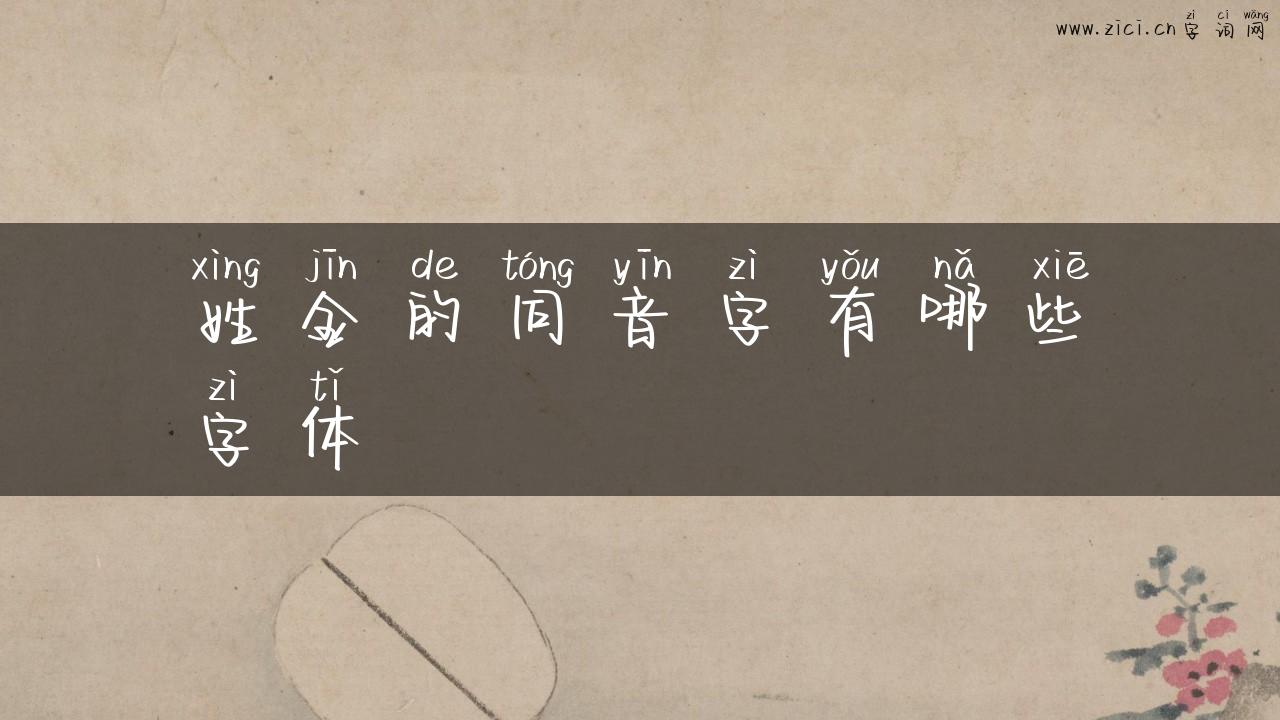 zì cí wǎng
www.zici.cn字词网
xìng jīn de tóng yīn zì yǒu nǎ xiē
姓金的同音字有哪些
zì tǐ
字体